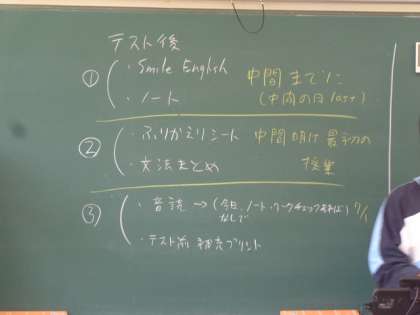 テスト後
① ・Smile English 中間までに
・ノート (中間の日 last)
② ・ふりかえりシート 中間明け最初の
・文法まとめ 授業
③ ・音読 → (今日、ノート・ワークチェックあれば) 7/1
なしで
・テスト前 補充プリント